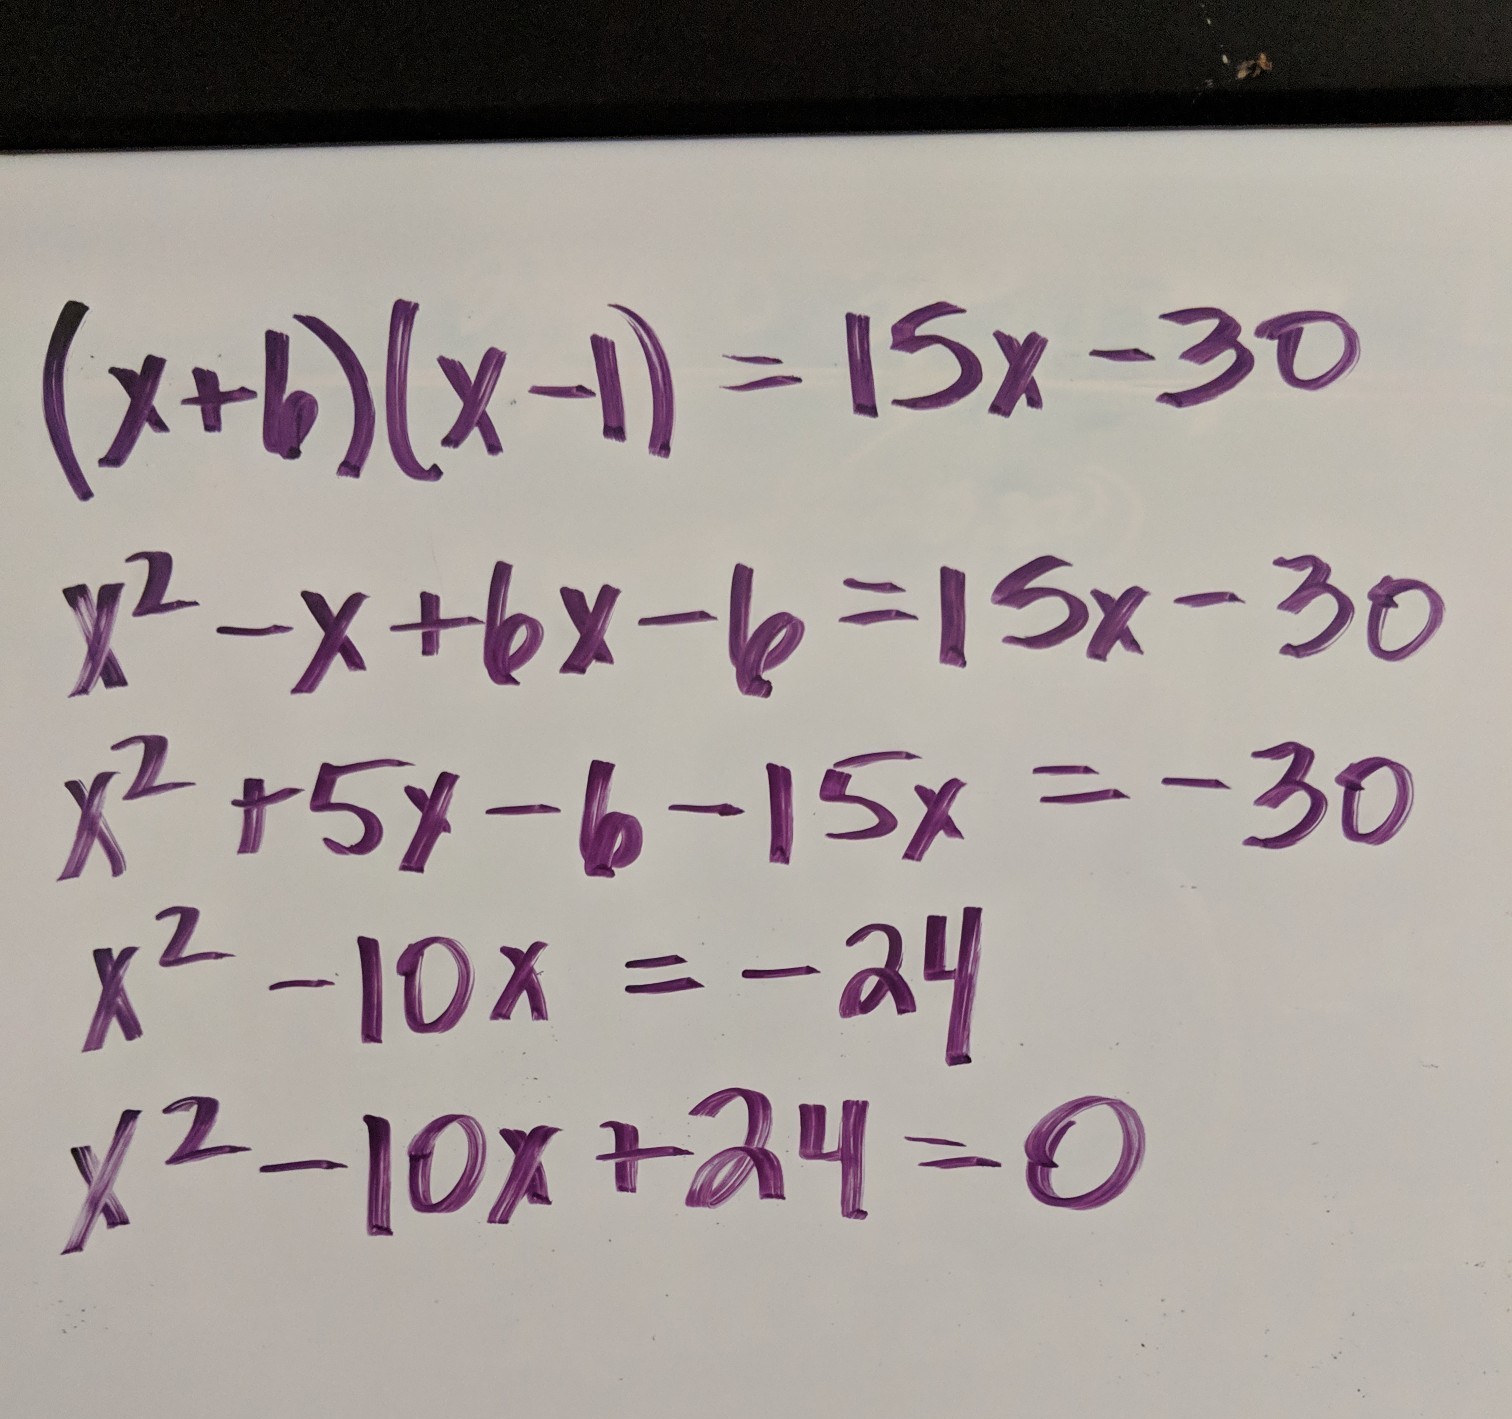 (x+6)(x-1) = 15x-30
x² -x+6x-6=15x-30
x² +5x-6-15x =-30
x² -10x = -24
x²-10x+24=0